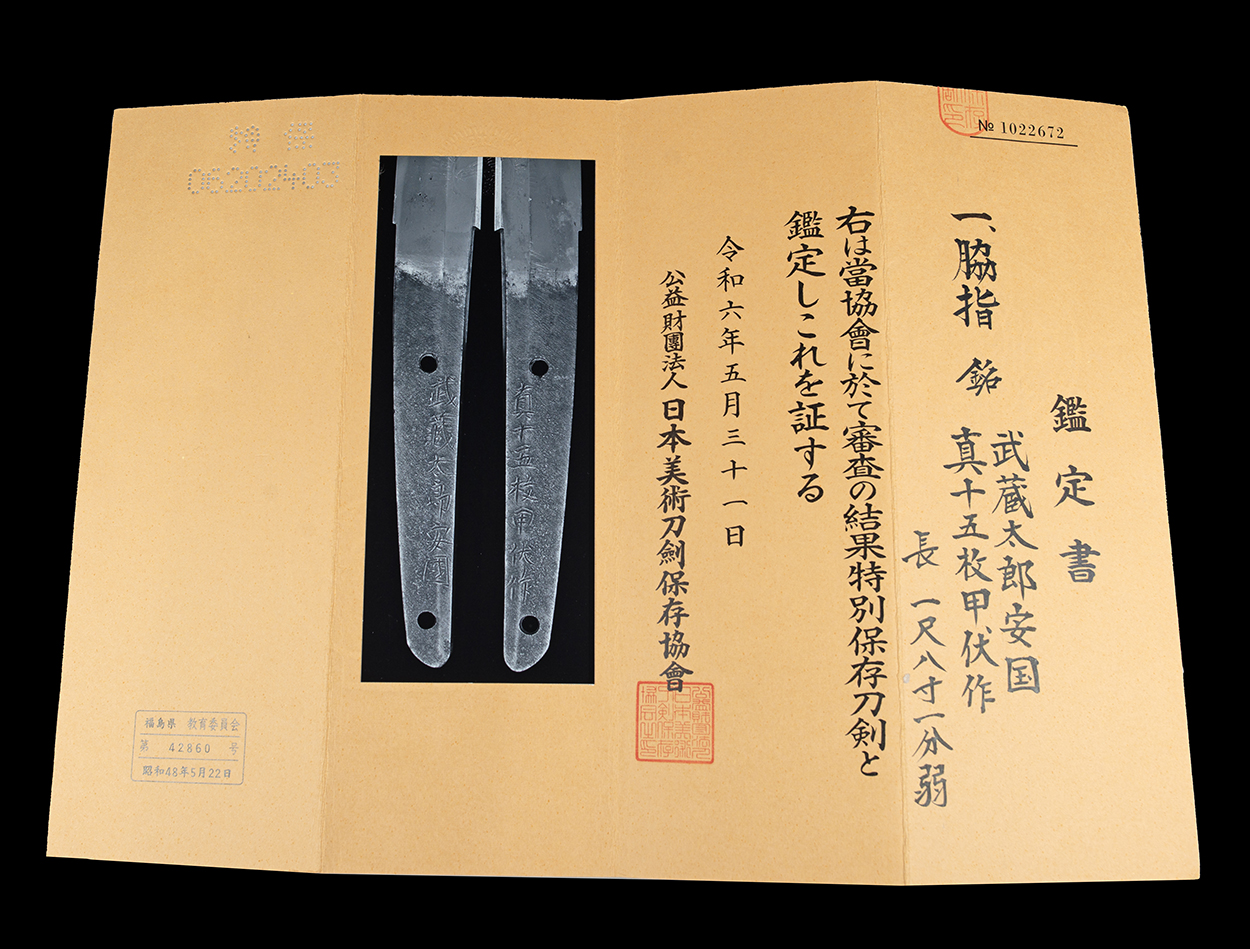 № 1022672
鑑定書
一、脇指 銘 武蔵太郎安国
真十五枚甲伏作
長 一尺八寸一分弱
右は當協會に於て審査の結果特別保存刀剣と
鑑定しこれを証する
令和六年五月三十一日
公益財團法人 日本美術刀劍保存協會
真十五枚甲伏作
武蔵太郎安國
特 保
06202403
福島県 教育委員会
第 42860 号
昭和48年5月22日